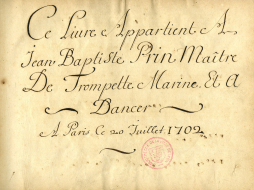 Ce Livre Appartient A
Jean Baptiste Prin Maître
De Trompette Marine Et A
Dancer
A Paris Ce 20 Juillet 1702